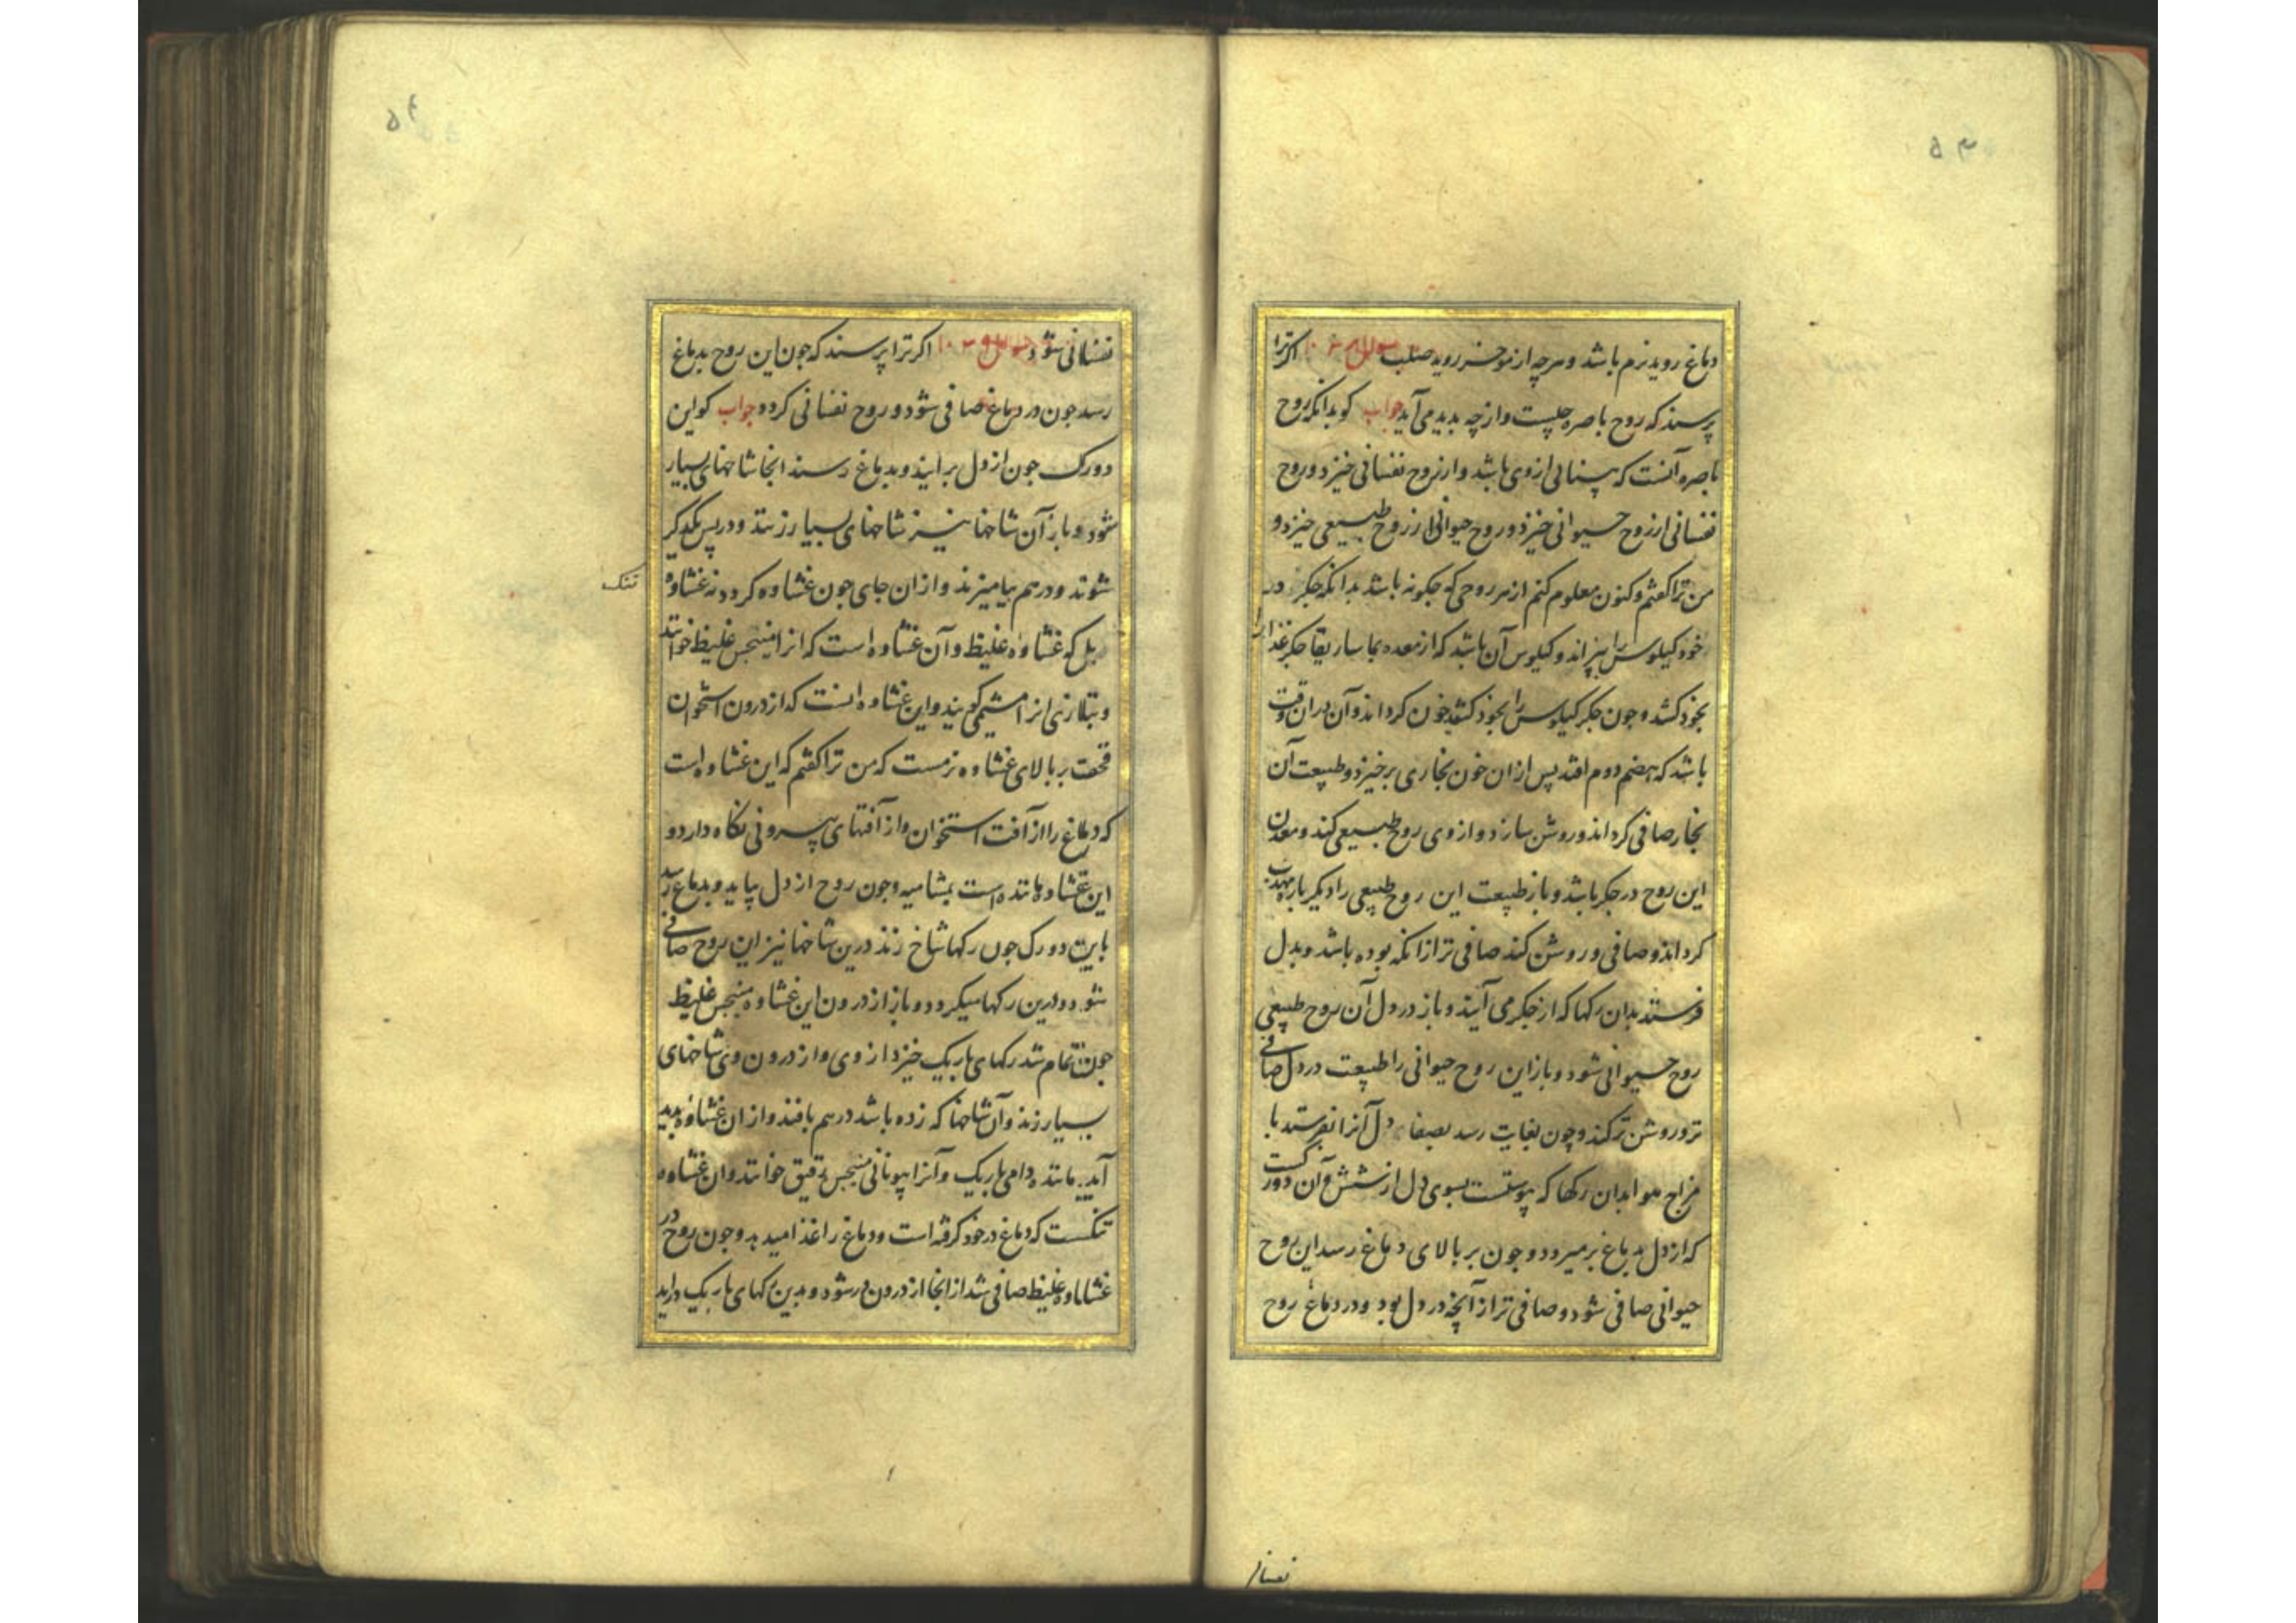 ۵۴
دماغ روید نرم باشد و هرچه از موخر روید صلب سوال اکر ترا
پرسند که روح باصره چیست و از چه بدید می آید جواب کو بدانکه روح
باصره آنست که بینائی از وی باشد و از روح نفسانی خیزد و روح
نفسانی از روح حیوانی خیزد و روح حیوانی از روح طبیعی خیزد و
من ترا کفتم و کنون معلوم کنم از هر روحی که جکونه باشد بدانکه جکر در
خود کیلوس را بپزاند و کیلوس آن باشد که از معده بماساریقا جکر غذا را
بخود کشد و جون جکر کیلوس را بخود کشد خون کرداند و آن دران وقت
باشد که هضم دوم افتد پس ازان خون بخاری برخیزد و طبیعت آن
بخار صافی کرداند و روشن سازد و از وی روح طبیعی کند و معدن
این روح در جکر باشد و باز طبیعت این روح طبیعی را دیکر باره مهذب
کرداند و صافی و روشن کند صافی تر ازانکه بوده باشد و بدل
فرستد بدان رکها که از جکر می آیند و باز در دل آن روح طبیعی
روح حیوانی شود و باز این روح حیوانی را طبیعت در دل صافی
تر و روشن تر کند و چون بغایت رسد بصفا دل آنرا بفرستد با
مزاج هوا بدان رکها که پیوستست بسوی دل از شش و آن دو رکست
که از دل بدماغ برمیرود و جون بر بالای دماغ رسد این روح
حیوانی صافی شود و صافی تر از آنچه در دل بود و در دماغ روح
نفسانی
۵۴
نفسانی شود سوال ۱۰۳ اکر ترا پرسند که جون این روح بدماغ
رسد جون در دماغ صافی شود و روح نفسانی کردد جواب کو این
دو رک جون از دل برایند و بدماغ رسند انجا شاخهای بسیار
شود و باز آن شاخها نیز شاخهای بسیار زنند و در پس یکدیکر
شوند و درهم بیامیزند و ازان جای جون غشاوه کردد نه غشاوه
تنک
بل که غشاوه غلیظ و آن غشاوه است که انرا مننجس غلیظ خوانند
و بتازی انرا مشیمی کویند و این غشاوه انست که از درون استخوان
قحف بر بالای غشاوه نرمست که من ترا کفتم که این غشاوه است
که دماغ را از آفت استخوان و از آفتهای بیرونی نکاه دارد و
این غشاوه ماننده است بمشامیه و جون روح از دل بیاید و بدماغ رسد
باین دو رک جون رکها شاخ زند درین شاخها نیز این روح صافی
شود و درین رکها میکردد و باز از درون این غشاوه مننجس غلیظ
جون تمام شد رکهای باریک خیزد از وی و از درون وی شاخهای
بسیار زند و آن شاخها که زده باشد درهم بافند و ازان غشاوه بدید
آید مانند دامی باریک و آنرا بیونانی مننجس رقیق خوانند و ان غشاوه
تنکست که دماغ در خود کرفته است و دماغ را غذا میدهد و جون روح در
غشاوه غلیظ صافی شد از انجا از درون در شود و بدین رکهای باریک دراید